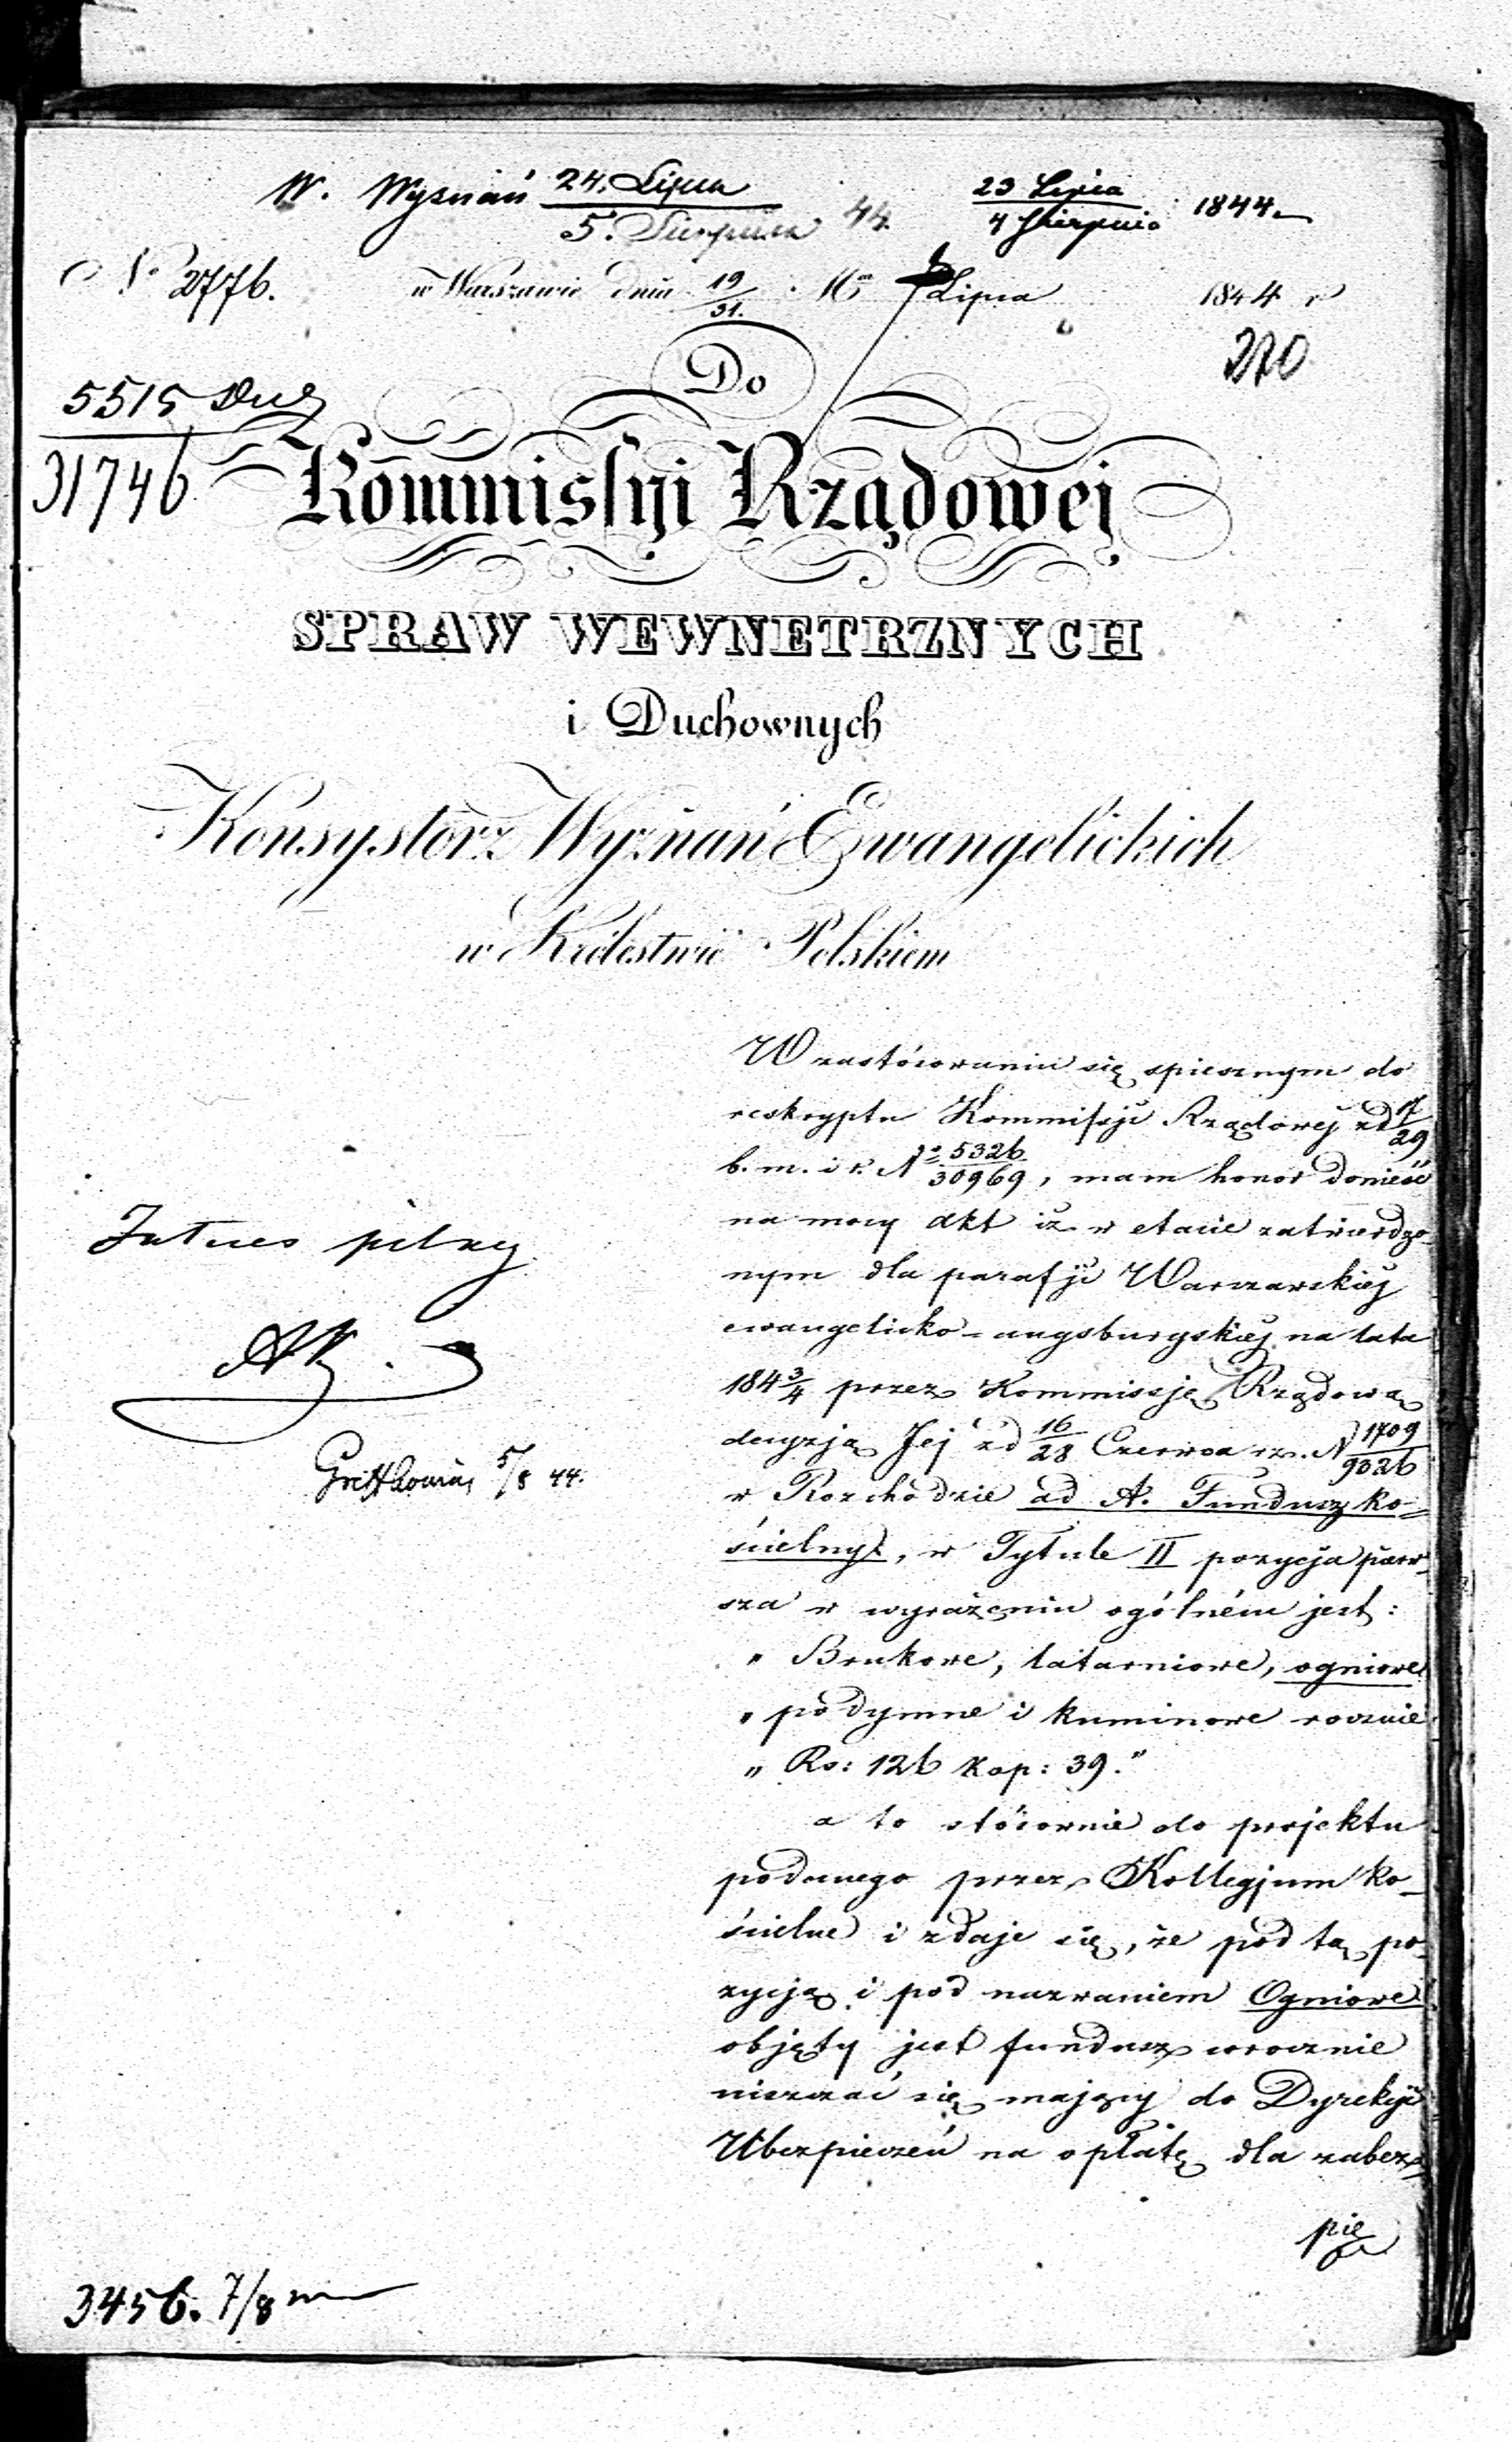 W. Wyznań 24. Lipca / 5. Sierpnia 44. 23 Lipca / 4 Sierpnia 1844.
No 2776. w Warszawie dnia 19/31. Mca Lipca 1844 r
270
Do
5515 Duch
31746
Kommissyi Rządowej
SPRAW WEWNETRZNYCH
i Duchownych
Konsystorz Wyznań Ewangelickich
w Królestwie Polskiem
W zastósowaniu się spiesznym do
reskryptu Kommissji Rządowej zd 17/29
b. m. i r. No 5326/30969, mam honor donieść
na mocy akt iż w etacie zatwierdzo-
nym dla parafji Warszawskiej
ewangelicko-augsburgskiej na lata
184 3/4 przez Kommissję Rządową
decyzją Jej zd 16/28 Czerwca rz. N 1709/9326
w Rozchodzie ad A. Fundusz ko=
ścielny, w Tytule II pozycja pierw-
sza w wyrażeniu ogólném jest:
" Brukowe, latarniowe, ogniowe
" podymne i kuminowe rocznie
" Rs: 126 kop: 39."
a to stósownie do projektu
podanego przez Kollegjum ko-
ścielne i zdaje się, że pod tą po-
zycją i pod nazwaniem Ogniowe
objęty jest fundusz corocznie
uiszczać się mający do Dyrekcji
Ubezpieczeń na opłatę dla zabez-
pie
Interes pilny
5/8 44.
3456. 7/8